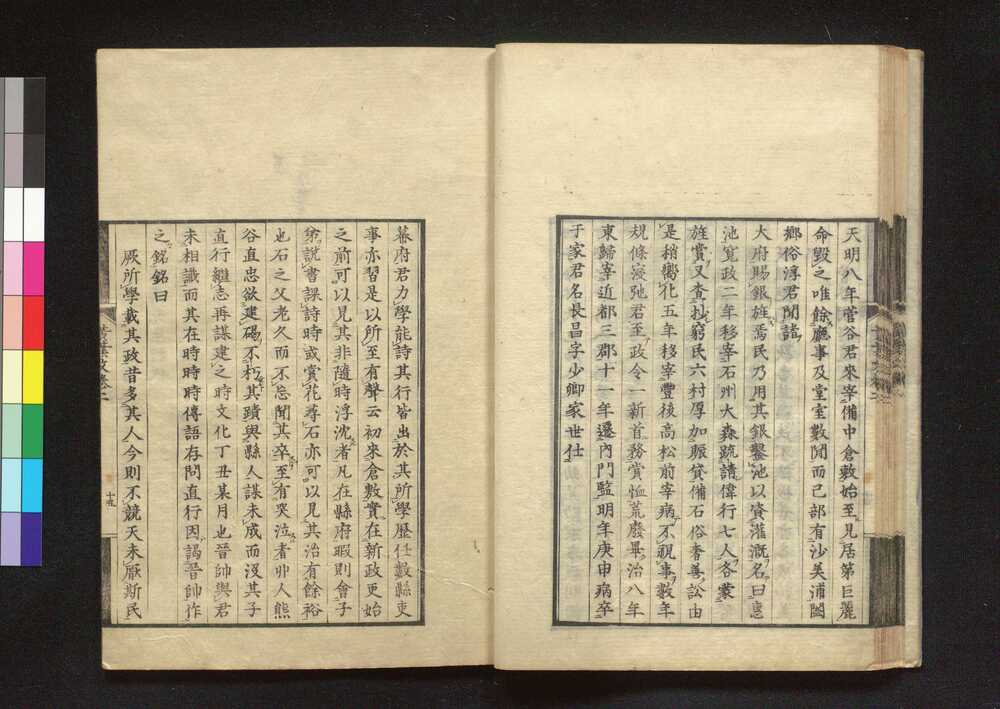 天明八年菅谷君來宰備中倉敷始至見居第巨麗
命毀之唯餘廳事及堂室數間而已部有沙美浦闔
鄉俗淳君聞諸
大府賜銀旌焉民乃用其銀鑿池以資灌漑名曰惠
池寬政二年移宰石州大森疏請偉行七人各蒙
旌賞又查抄窮民六村厚加賑貸備石俗耆善訟由
是稍嚮化五年移宰豐後高松前宰病不視事數年
規條寖弛君至政令一新首務賞恤荒廢畢治八年
東歸宰近都三郡十一年遷內門監明年庚申病卒
于家君名長昌字少卿家世仕
幕府君力學能詩其行皆出於其所學歷任數縣吏
事亦習是以所至有聲云初來倉敷實在新政更始
之前可以見其非隨時浮沈者凡在縣府暇則會子
弟說書課詩時或賞花尋石亦可以見其治有餘裕
也石之父老久而不忘聞其卒至有哭泣者丱人熊
谷直忠欲建碣不朽其蹟與縣人謀未成而沒其子
直行繼志再謀建之時文化丁丑某月也晉帥與君
未相識而其在時時時傳語存問直行因謁晉帥作
之銘銘曰
厥所學載其政昔多其人今則不競天未厭斯民
十五